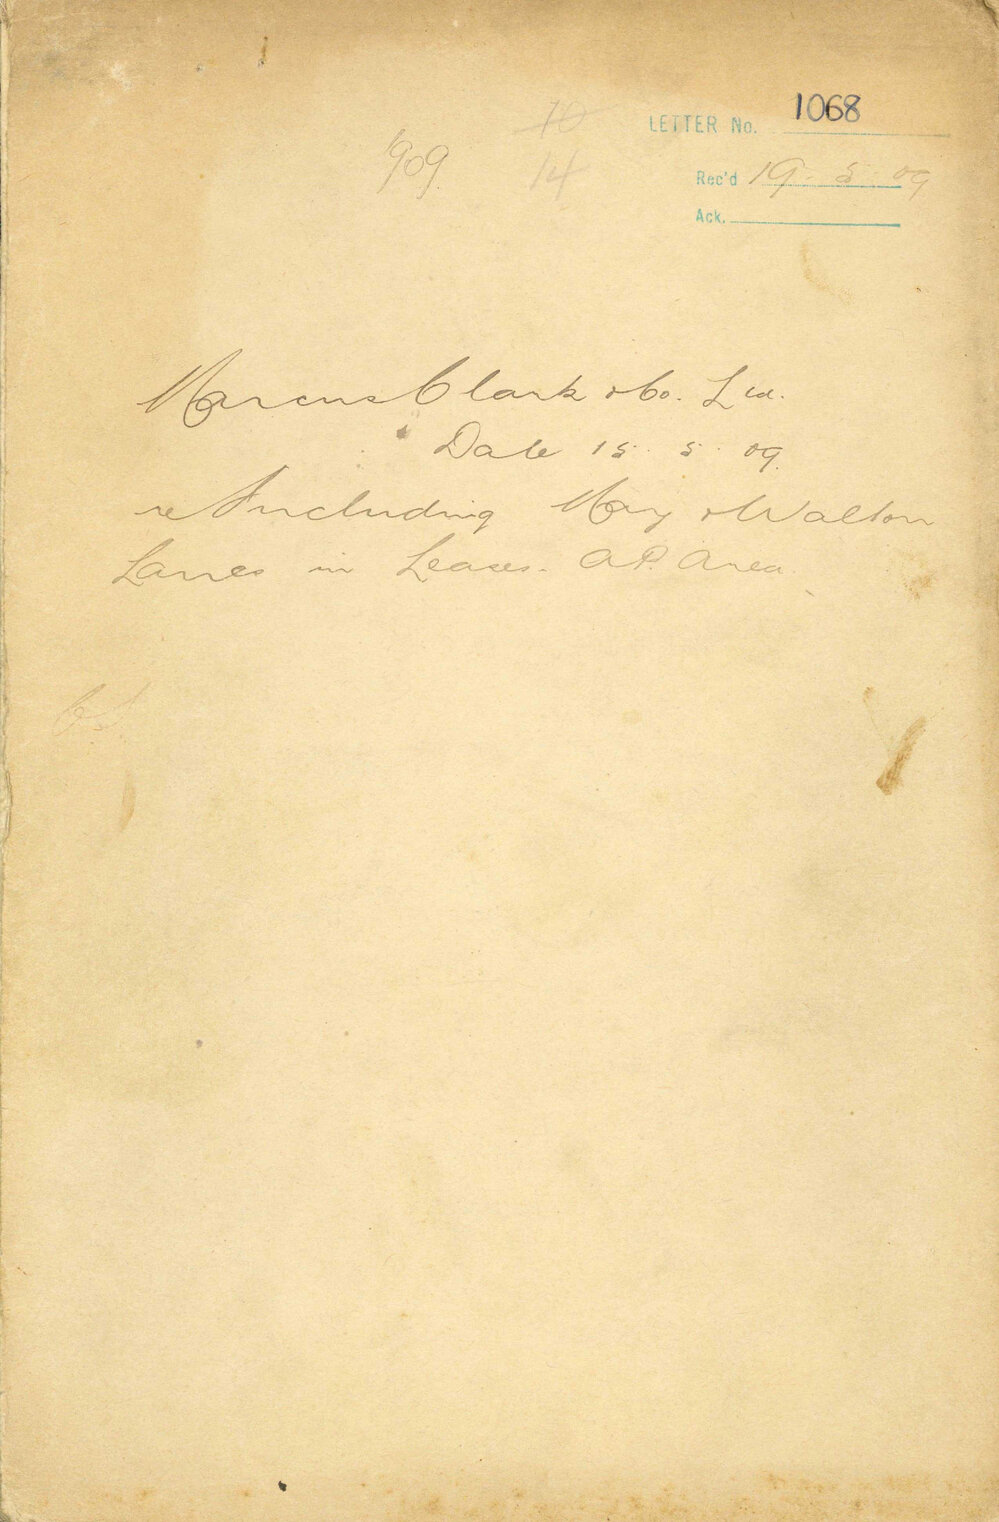 LETTER No. 1068
1909
10
14
Rec'd 19. 5. 09
Ack.
Marcus Clark & Co. Ltd.
Date 15. 5. 09
re Including Hay & Walton
Lanes in Leases. A.P. Area.